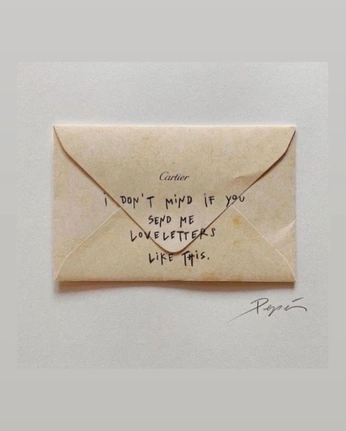 Cartier
I DON'T MIND IF YOU
SEND ME
LOVELETTERS
LIKE THIS.